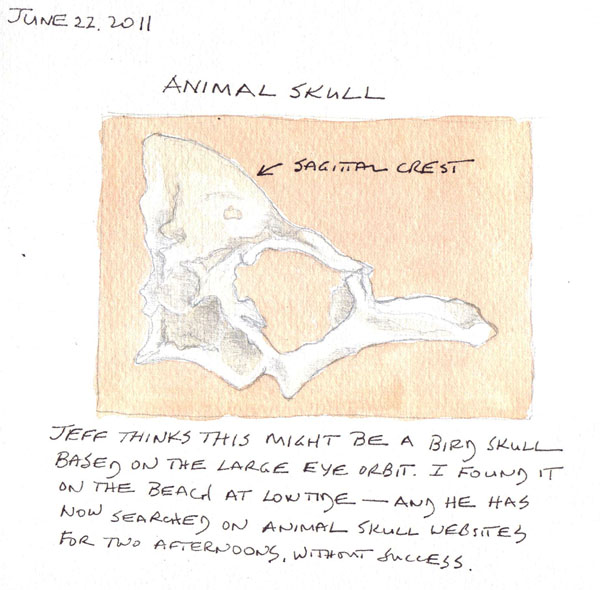 JUNE 22. 2011
ANIMAL SKULL
SAGITTAL CREST
JEFF THINKS THIS MIGHT BE A BIRD SKULL
BASED ON THE LARGE EYE ORBIT. I FOUND IT
ON THE BEACH AT LOW TIDE — AND HE HAS
NOW SEARCHED ON ANIMAL SKULL WEBSITES
FOR TWO AFTERNOONS, WITHOUT SUCCESS.